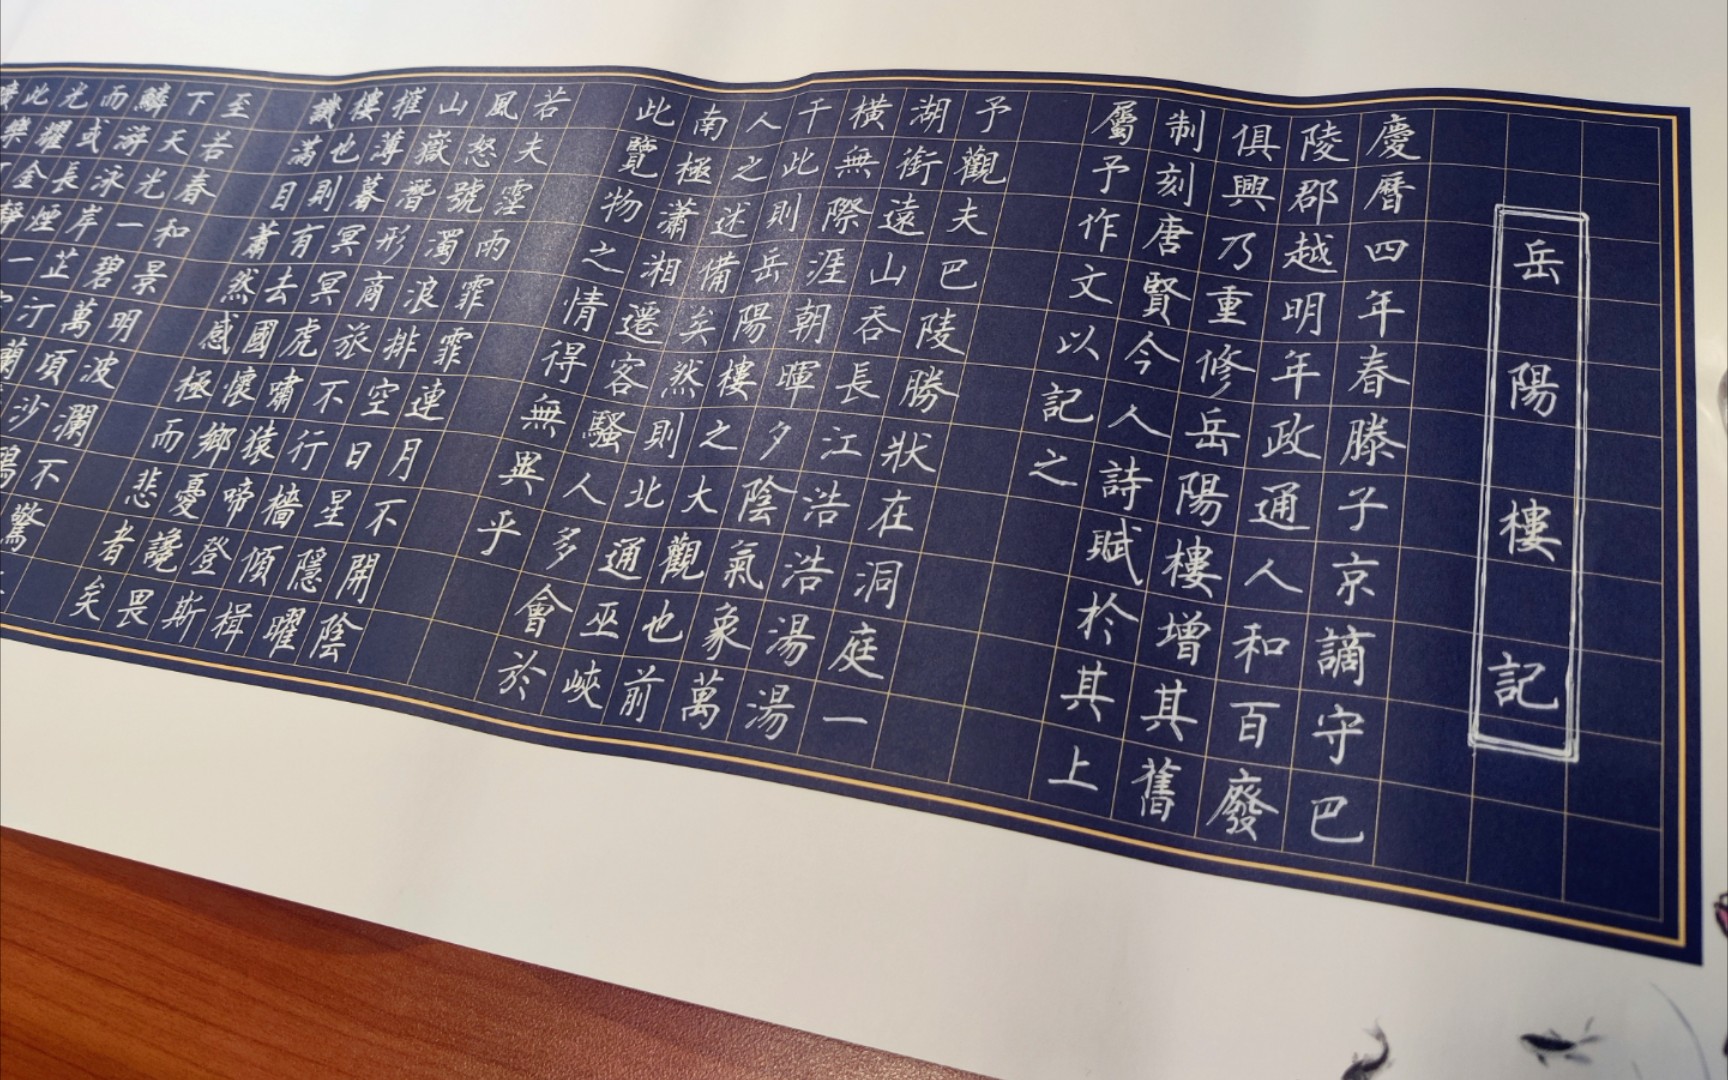 岳陽樓記
慶曆四年春滕子京謫守巴
陵郡越明年政通人和百廢
俱興乃重修岳陽樓增其舊
制刻唐賢今人詩賦於其上
屬予作文以記之
予觀夫巴陵勝狀在洞庭一
湖銜遠山吞長江浩浩湯湯
橫無際涯朝暉夕陰氣象萬
千此則岳陽樓之大觀也前
人之述備矣然則北通巫峽
南極瀟湘遷客騷人多會於
此覽物之情得無異乎
若夫霪雨霏霏連月不開陰
風怒號濁浪排空日星隱曜
山嶽潛形商旅不行檣傾楫
摧薄暮冥冥虎嘯猿啼登斯
樓也則有去國懷鄉憂讒畏
譏滿目蕭然感極而悲者矣
至若春和景明波瀾不驚
下天光一碧萬頃沙鷗
鱗游泳岸芷汀蘭
而或長煙一空
光耀金靜
此樂